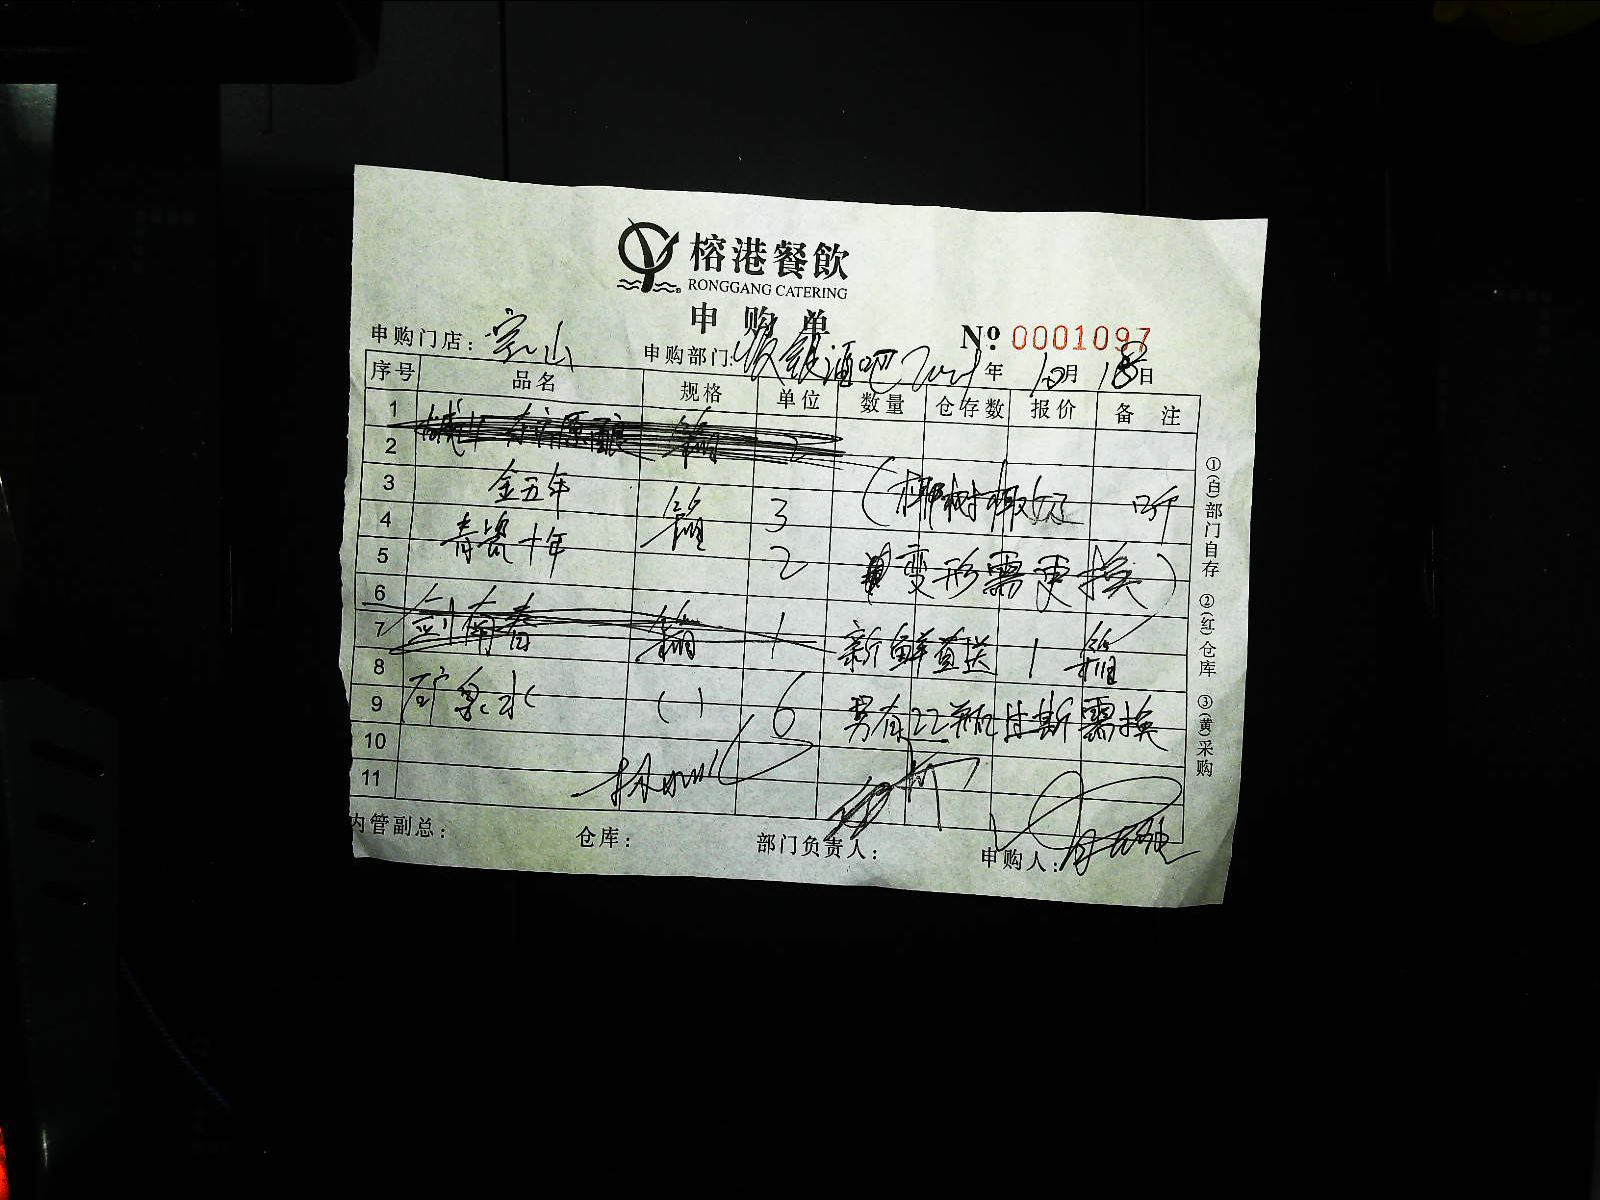 榕港餐飲
RONGGANG CATERING
申购单
№ 0001097
申购门店：宝山 申购部门：收银酒吧 2021年10月18日
序号 品名 规格 单位 数量 仓存数 报价 备注
1
2 原酿 箱 2
3 金五年 箱 3 （椰树椰奶 12听
4 青瓷十年
5 2 变形需更换）
6
7 剑南春 箱 1 新鲜直送 1 箱
8
9 矿泉水 6 另有22瓶过期需换
10
11
内管副总： 仓库： 部门负责人： 申购人：
①(白)部门自存 ②(红)仓库 ③(黄)采购